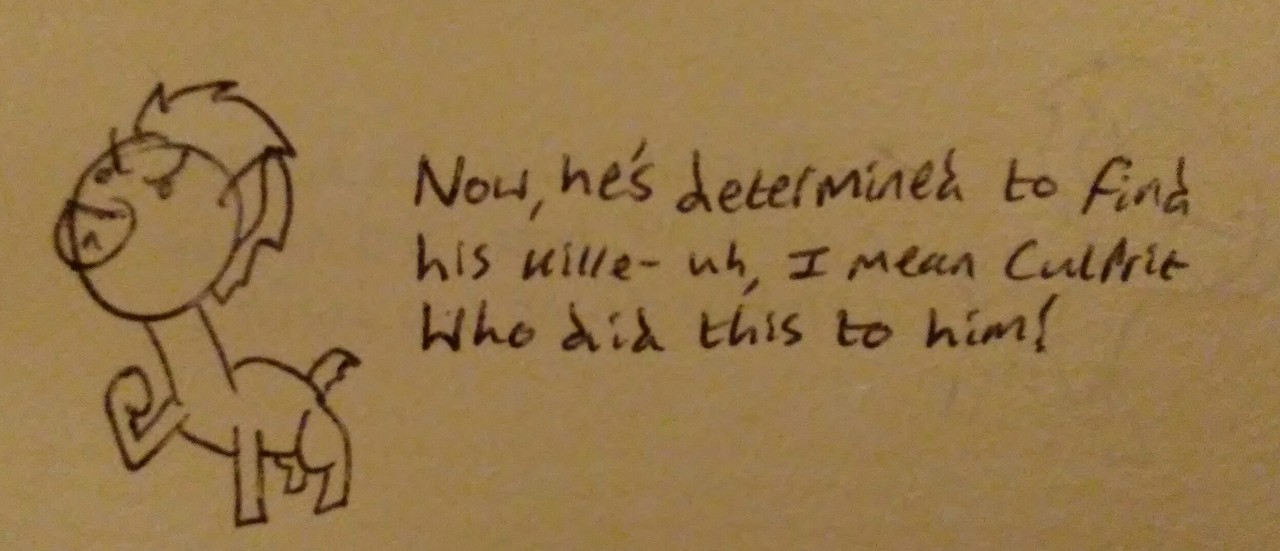 Now, he's determined to find
his kille- uh, I mean Culprit
Who did this to him!